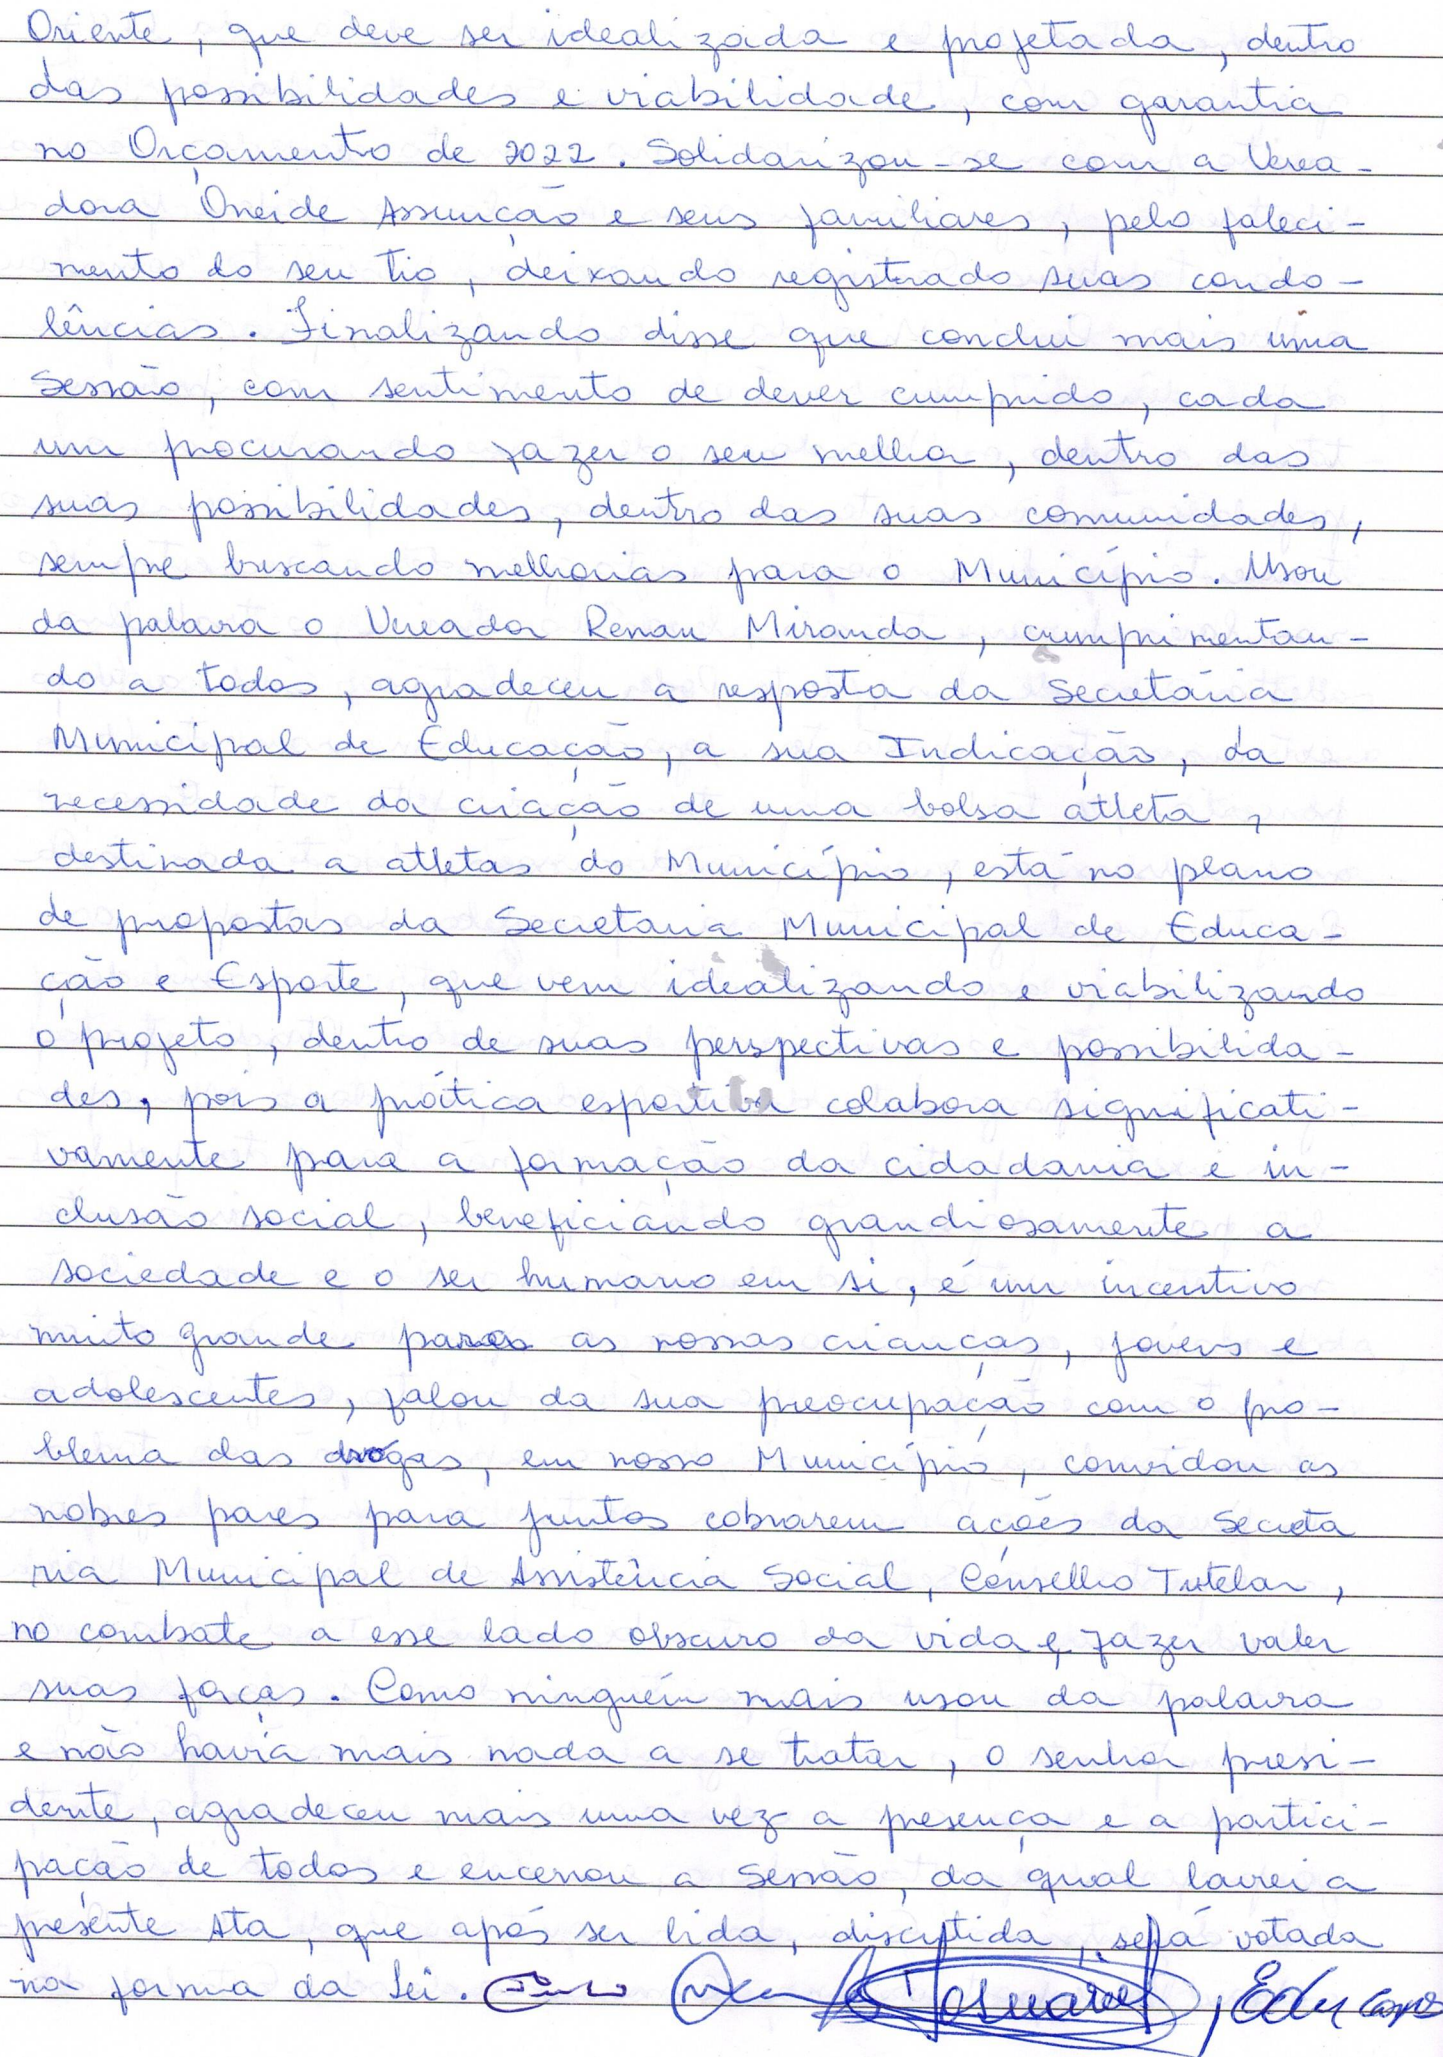 Oriente, que deve ser idealizada e projetada, dentro
das possibilidades e viabilidade, com garantia
no Orçamento de 2022. Solidarizou-se com a Verea-
dora Oneide Assunção e seus familiares, pelo faleci-
mento do seu tio, deixando registrado suas condo-
lências. Finalizando disse que conclui mais uma
Sessão, com sentimento de dever cumprido, cada
um procurando fazer o seu melhor, dentro das
suas possibilidades, dentro das suas comunidades,
sempre buscando melhorias para o Município. Usou
da palavra o Vereador Renan Miranda, cumprimentan-
do a todos, agradeceu a resposta da Secretária
Municipal de Educação, a sua Indicação, da
necessidade da criação de uma bolsa atleta,
destinada a atletas do Município, está no plano
de propostas da Secretaria Municipal de Educa-
ção e Esporte, que vem idealizando e viabilizando
o projeto, dentro de suas perspectivas e possibilida-
des, pois a prática esportiva colabora significati-
vamente para a formação da cidadania e in-
clusão social, beneficiando grandiosamente a
sociedade e o ser humano em si, é um incentivo
muito grande para as nossas crianças, jovens e
adolescentes, falou da sua preocupação com o pro-
blema das drogas, em nosso Município, convidou os
nobres pares para juntos cobrarem ações da Secreta
ria Municipal de Assistência Social, Conselho Tutelar,
no combate a esse lado obscuro da vida e, fazer valer
suas forças. Como ninguém mais usou da palavra
e não havia mais nada a se tratar, o senhor presi-
dente, agradeceu mais uma vez a presença e a partici-
pação de todos e encerrou a Sessão, da qual lavrei a
presente Ata, que após ser lida, discutida, será votada
na forma da Lei.